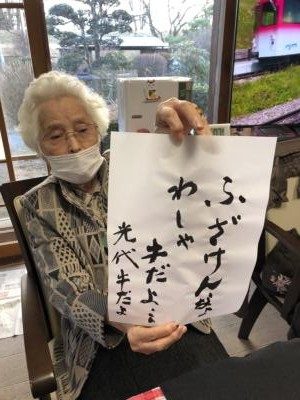 ふざけんな
わしゃ
未だよ
光代牛だよ